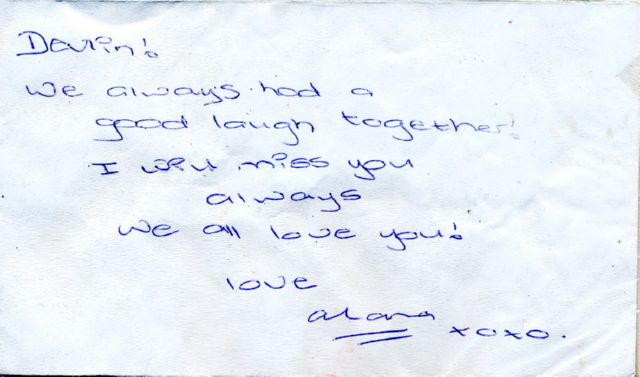 Devin!
We always had a
good laugh together!
I will miss you
always
We all love you!
love
alana xoxo.